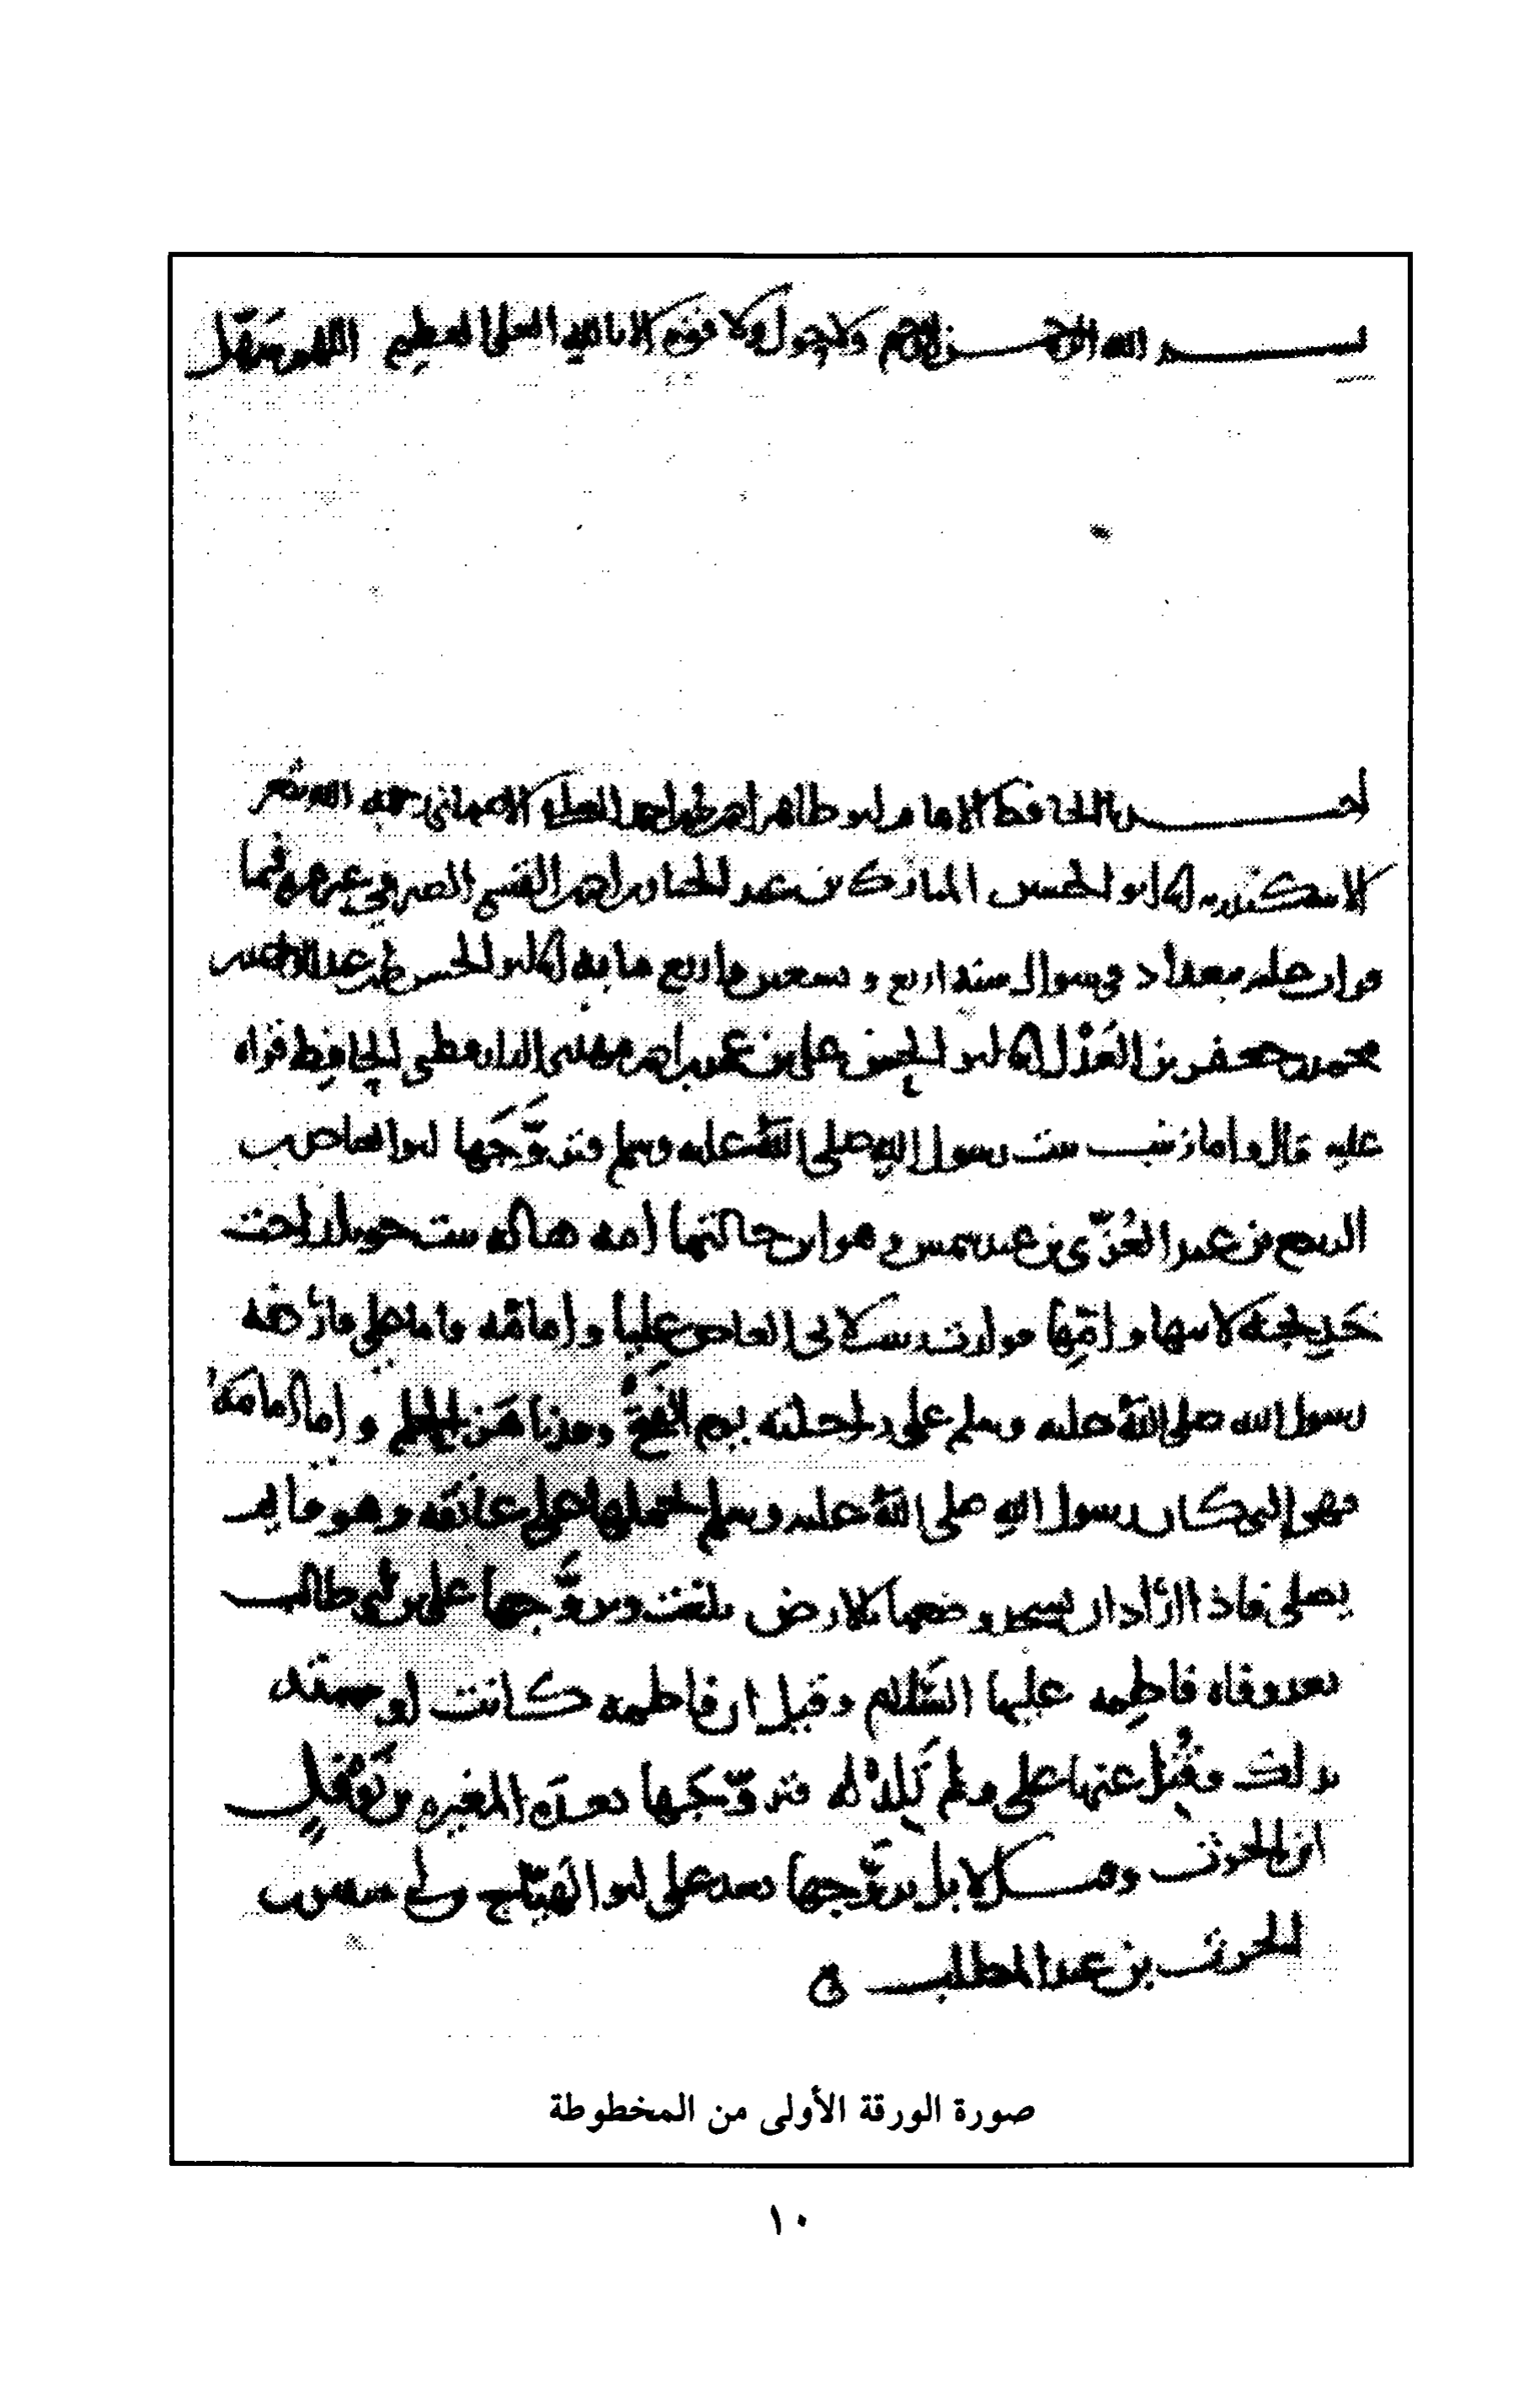 بسم الله الرحمن الرحيم ولا حول ولا قوة الا بالله العلي العظيم اللهم سهل
الحافظ الامام ابو طاهر احمد بن محمد بن احمد السلفي الاصبهاني رحمه الله بثغر
الاسكندرية ابو الحسين المبارك بن عبد الجبار بن احمد بن القسم الصيرفي فيما
قرات عليه ببغداد في شوال سنة اربع و تسعين واربع مايه
محمد بن جعفر بن ابو الحسن علي بن عمر بن احمد بن مهدي الدارقطني الحافظ قراه
عليه قال واما زينب بنت رسول الله صلى الله عليه وسلم فتزوَّجَها ابو العاص بن
الربيع بن عبد العُزّى بن عبد شمس وهو ابن خالتها امه هاله بنت خويلد اخت
خَدِيجة لابيها وامّها فولدت زينب لابي العاص عليا وامامة فاما علي فأردفه
رسول الله صلى اللهُ عليه وسلم على راحلته يوم الفَتح الحلم واما أمامة
فهي التي كان رسول الله صلى اللهُ عليه وسلم يحملها على عاتقه وهو قايم
يصلي فاذا أراد ان يسجد وضعها بالارض بلغت وتزوَّجها علي بن ابي طالب
بعد وفاه فاطمه عليها السَّلام وقيل ان فاطمه كانت اوصته
بذلك فقُتِل عنها علي ولم تَلِدْ له فتزوّجها بعدَه المغيره بن نَوْفلٍ
ابن الحرث وقيل بل تزوَّجها بعد علي ابو الهيّاج بن
الحرث بن عبد المطلب ه
صورة الورقة الأولى من المخطوطة
١٠